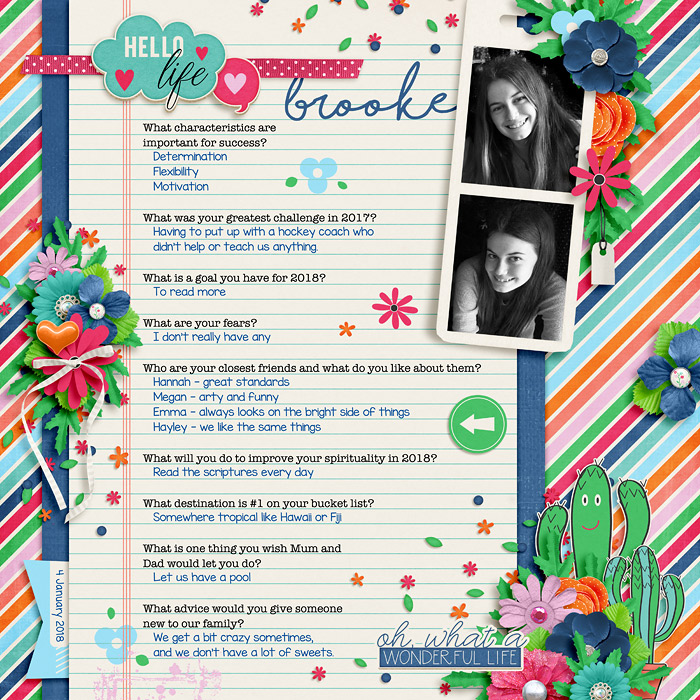 HELLO
life
brooke
What characteristics are
important for success?
Determination
Flexibility
Motivation
What was your greatest challenge in 2017?
Having to put up with a hockey coach who
didn't help or teach us anything.
What is a goal you have for 2018?
To read more
What are your fears?
I don't really have any
Who are your closest friends and what do you like about them?
Hannah - great standards
Megan - arty and funny
Emma - always looks on the bright side of things
Hayley - we like the same things
What will you do to improve your spirituality in 2018?
Read the scriptures every day
What destination is #1 on your bucket list?
Somewhere tropical like Hawaii or Fiji
What is one thing you wish Mum and
Dad would let you do?
Let us have a pool
What advice would you give someone
new to our family?
We get a bit crazy sometimes,
and we don't have a lot of sweets.
4 January 2018
oh, what a
WONDERFUL LIFE